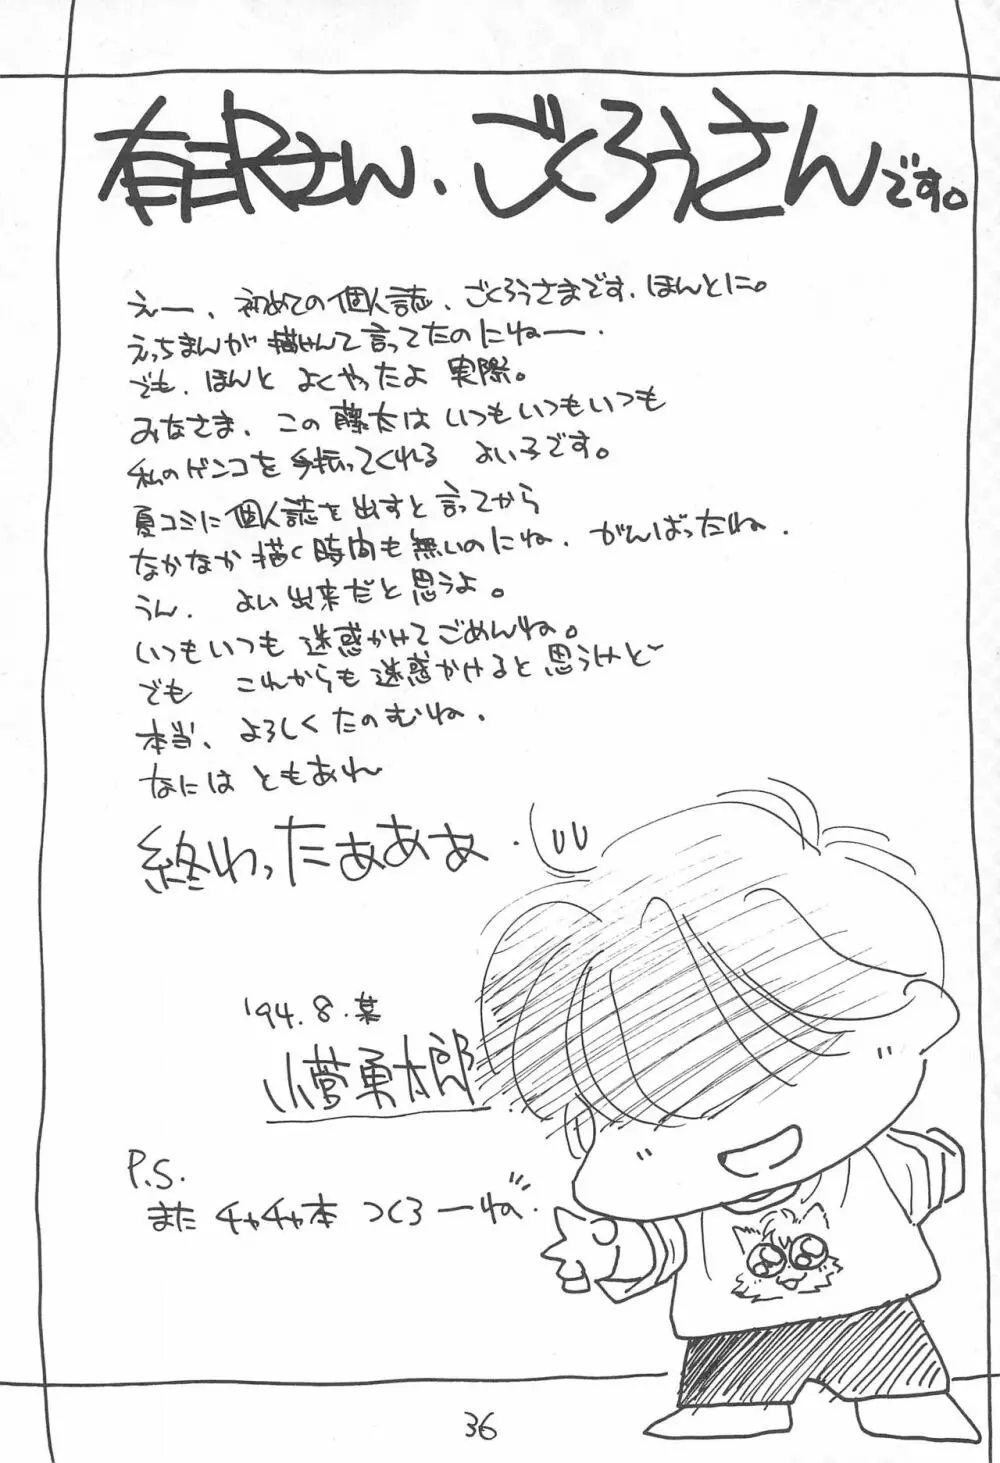 有沢さん、ごくろうさんです。
えー、初めての個人誌、ごくろうさまです、ほんとに。
えっちまんが描けんて言ってたのにねー、
でも、ほんと よくやったよ 実際。
みなさま、この 藤太は いつもいつもいつも
私のゲンコを手振ってくれる よい子です。
夏コミに個人誌を出すと言ってから
なかなか描く時間も無いのにね、がんばったね、
うん、よい出来だと思うよ。
いつもいつも迷惑かけてごめんね。
でも これからも迷惑かけると思うけど
本当、よろしくたのむね、
なには ともあれ
終わったぁぁぁ
'94.8.某
小菅勇太郎
P.S.
また チャチャ本 つくろーね
36